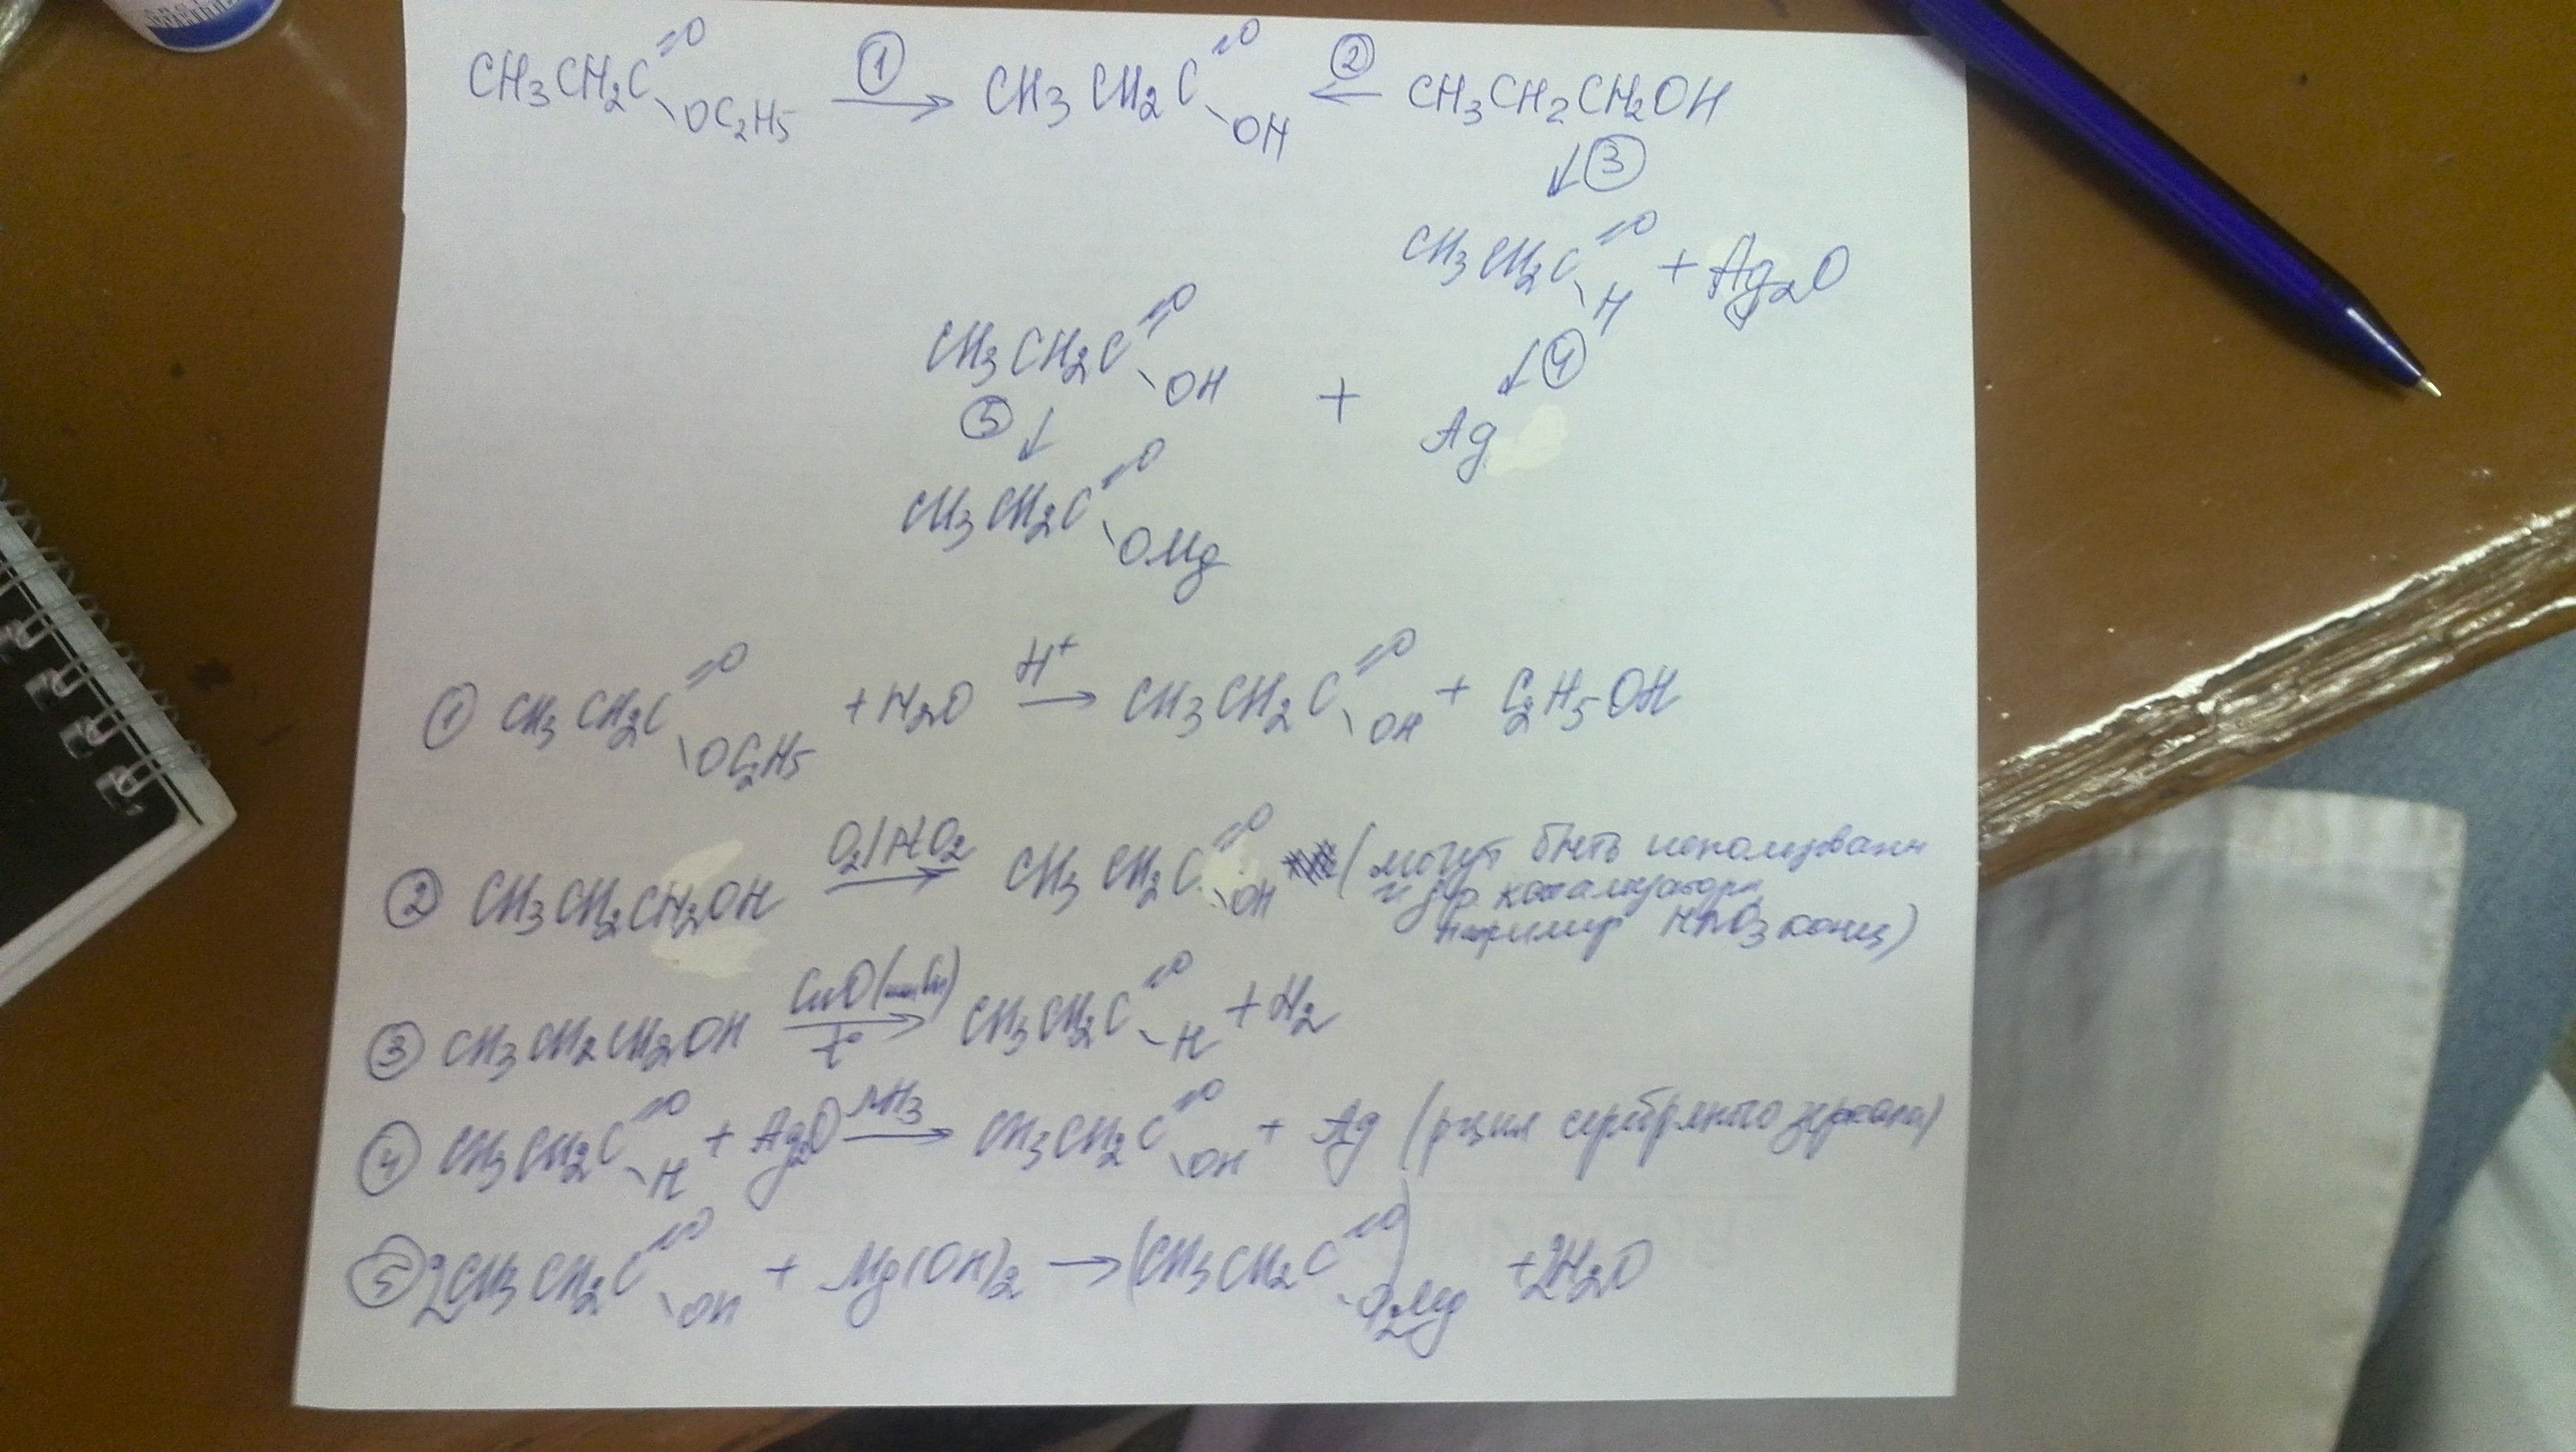 CH3CH2C=O\OC2H5 ①→ CH3CH2C=O\OH ②← CH3CH2CH2OH
↓③
CH3CH2C=O\H + Ag2O
CH3CH2C=O\OH + ↓④ Ag
⑤↓
CH3CH2C=O\OMg
① CH3CH2C=O\OC2H5 + H2O H+→ CH3CH2C=O\OH + C2H5OH
② CH3CH2CH2OH O2/PtO2→ CH3CH2C=O\OH (могут быть использованы
и др. катализаторы,
например HNO3 конц)
③ CH3CH2CH2OH CuO(или Cu)→t° CH3CH2C=O\H + H2
④ CH3CH2C=O\H + Ag2O NH3→ CH3CH2C=O\OH + Ag (р-ция серебряного зеркала)
⑤ 2CH3CH2C=O\OH + Mg(OH)2 → (CH3CH2C=O\O)2Mg + 2H2O